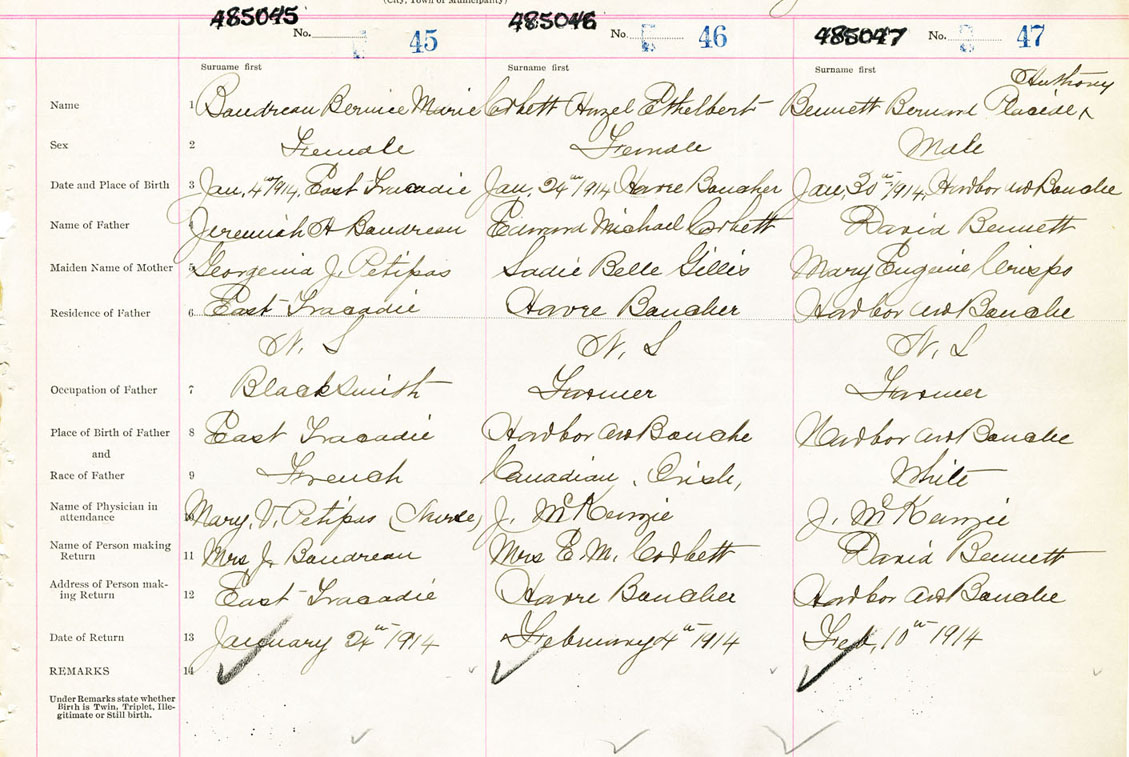 (City, Town or Municipality)
485045 485046 485047
No. 45 No. 46 No. 47
Surname first Surname first Surname first
Anthony
Name 1 Boudreau Bernice Marie Corbett Hazel Ethelbert Bennett Bernard Placide ^
Sex 2 Female Female Male
Date and Place of Birth 3 Jan, 4th 1914, East Tracadie Jan, 24th 1914, Havre Boucher Jan, 30th 1914, Harbor au Bouche
Name of Father 4 Jeremiah H Boudreau Edward Michael Corbett David Bennett
Maiden Name of Mother 5 Georgenia J. Petipas Sadie Belle Gillis Mary Eugenie Crispo
Residence of Father 6 East Tracadie Havre Boucher Harbor au Bouche
N. S N. S N. S
Occupation of Father 7 Blacksmith Farmer Farmer
Place of Birth of Father 8 East Tracadie Harbor au Bouche Harbor au Bouche
and
Race of Father 9 French Canadian, Irish, White
Name of Physician in
attendance 10 Mary, V. Petipas (Nurse) J. McKenzie J. McKenzie
Name of Person making
Return 11 Mrs J. Boudreau Mrs E. M. Corbett David Bennett
Address of Person mak-
ing Return 12 East Tracadie Havre Boucher Harbor au Bouche
Date of Return 13 January 24th 1914 February 4th 1914 Feb, 10th 1914
REMARKS 14
Under Remarks state whether
Birth is Twin, Triplet, Ille-
gitimate or Still birth.